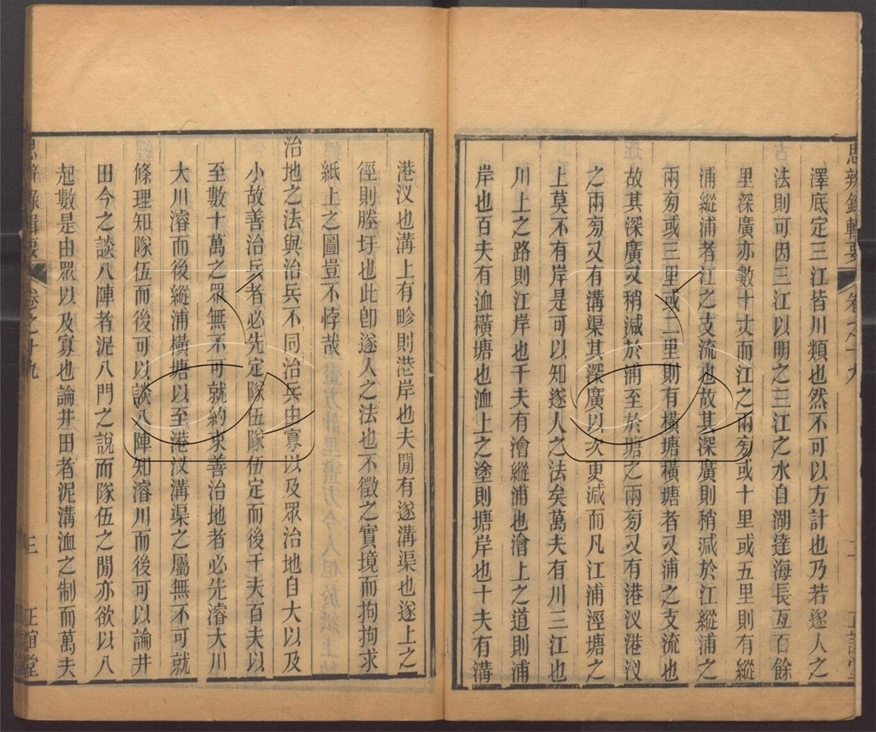 澤底定三江皆川類也然不可以方計也乃若遂人之
法則可因三江以明之三江之水自湖達海長亙百餘
里深廣亦數十丈而江之兩旁或十里或五里則有縱
浦縱浦者江之支流也故其深廣則稍減於江縱浦之
兩旁或三里或二里則有橫塘橫塘者又浦之支流也
故其深廣又稍減於浦至於塘之兩旁又有港汊港汊
之兩旁又有溝渠其深廣以次更減而凡江浦涇塘之
上莫不有岸是可以知遂人之法矣萬夫有川三江也
川上之路則江岸也千夫有澮縱浦也澮上之道則浦
岸也百夫有洫橫塘也洫上之塗則塘岸也十夫有溝
思辨錄輯要
卷之十九
二
正誼堂
港汊也溝上有畛則港岸也夫閒有遂溝渠也遂上之
徑則塍圩也此卽遂人之法也不徵之實境而拘拘求
紙上之圖豈不悖哉
治地之法與治兵不同治兵由寡以及眾治地自大以及
小故善治兵者必先定隊伍隊伍定而後千夫百夫以
至數十萬之眾無不可就約束善治地者必先濬大川
大川濬而後縱浦橫塘以至港汊溝渠之屬無不可就
條理知隊伍而後可以談八陣知濬川而後可以論井
田今之談八陣者泥八門之說而隊伍之閒亦欲以八
起數是由眾以及寡也論井田者泥溝洫之制而萬夫
思辨錄輯要
卷之十九
三
正誼堂